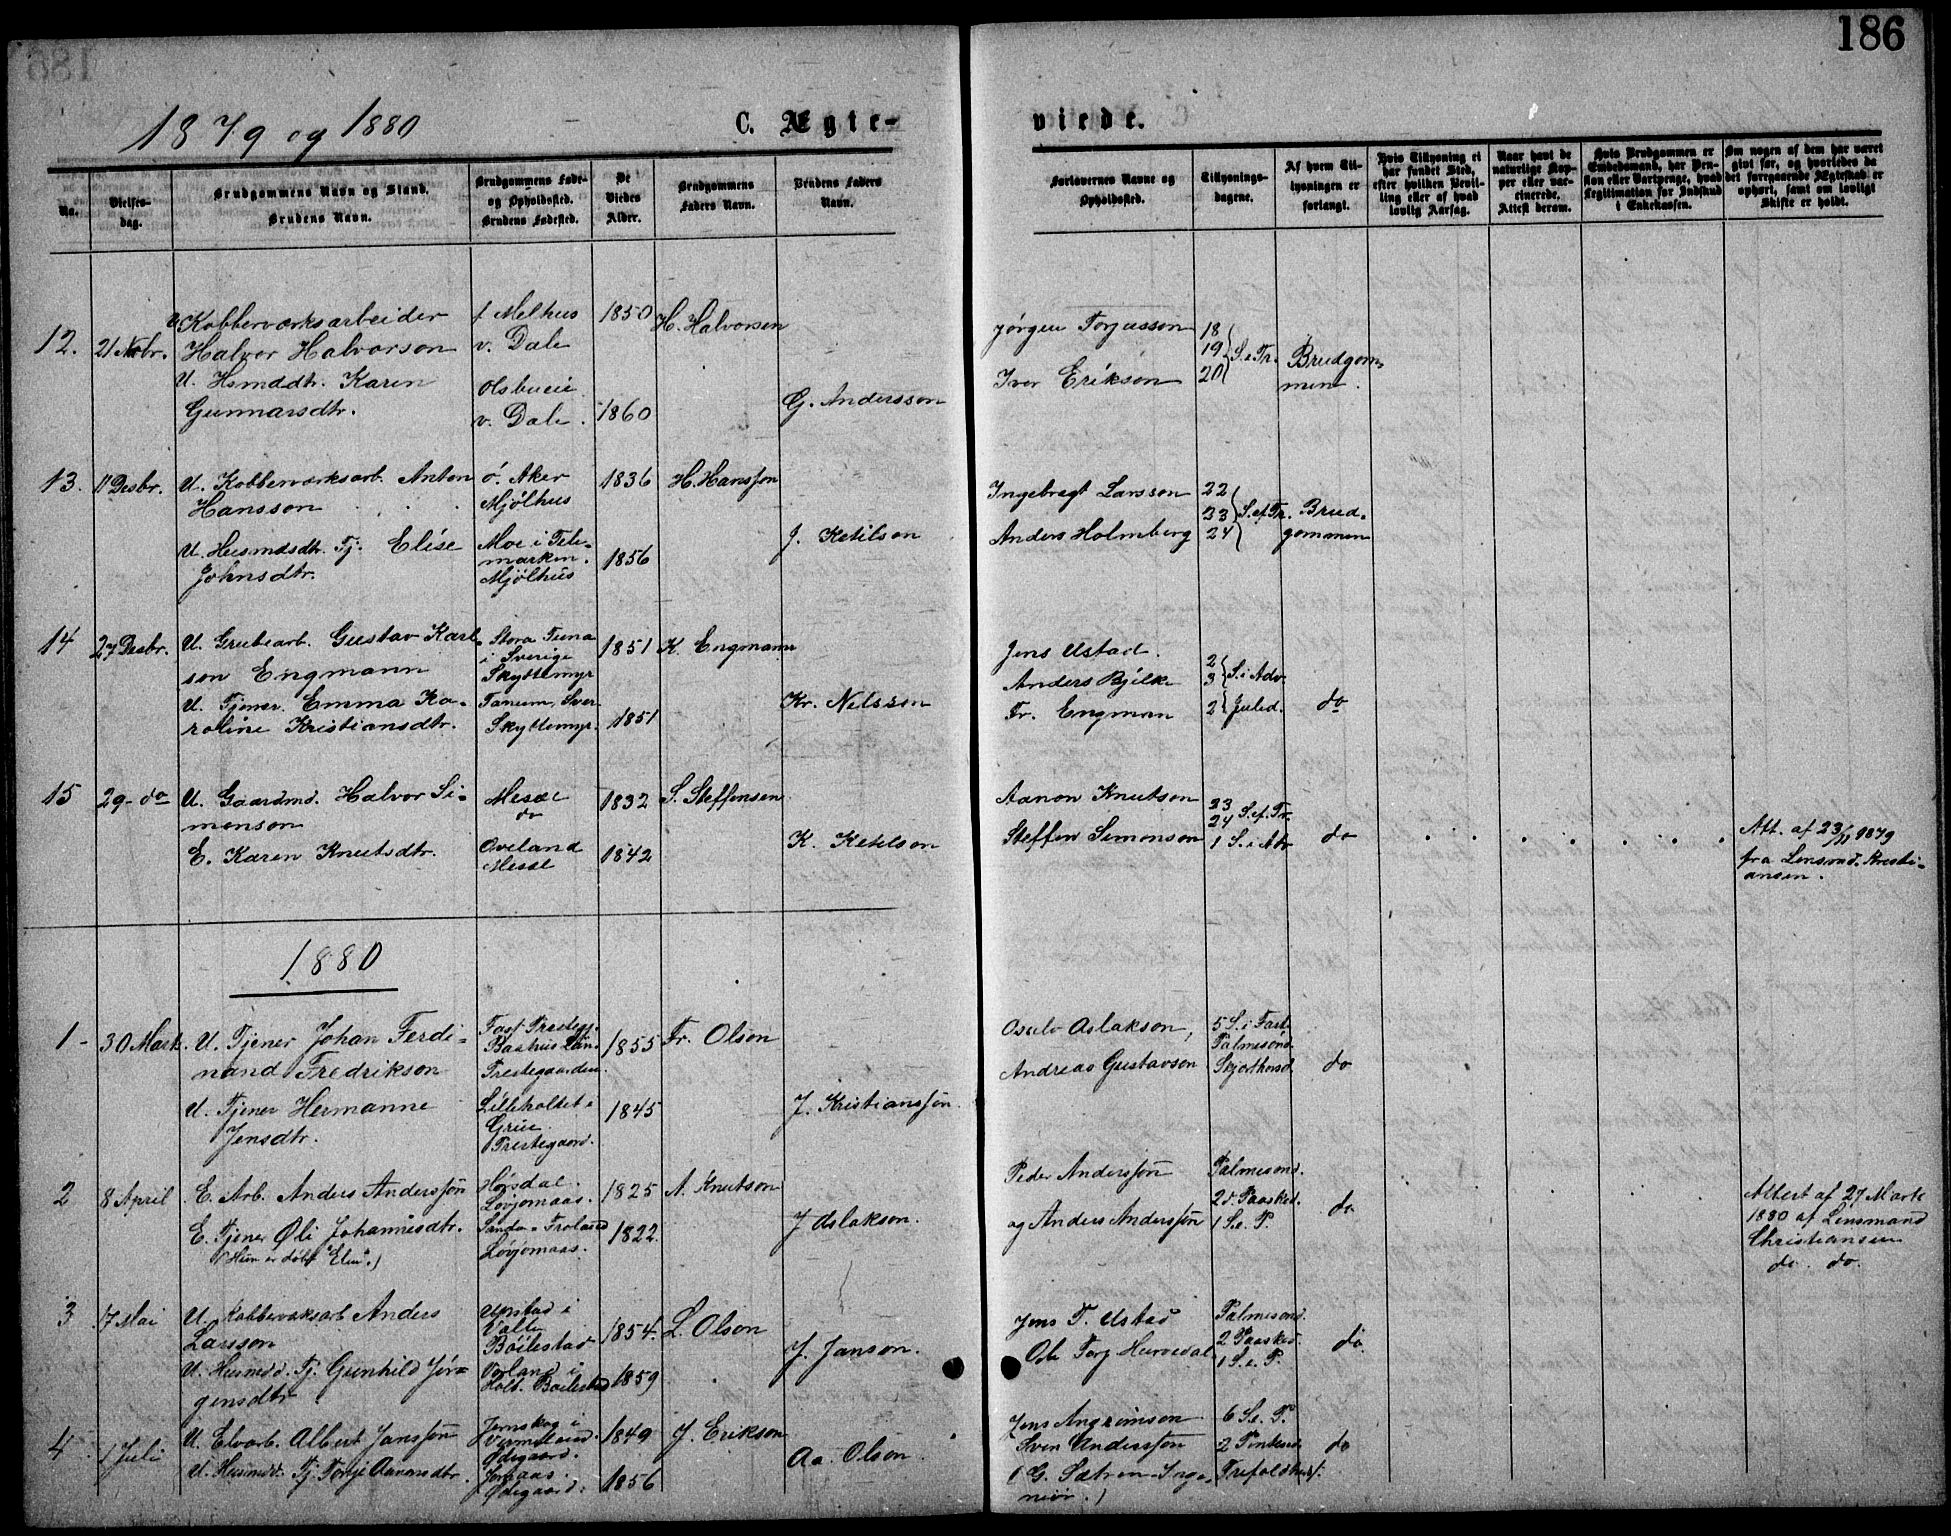 186
1879 og 1880
C. Ægte-
viede.
No.
Vielses-
dag.
Brudgommens Navn og Stand.
Brudens Navn.
Brudgommens Føde-
og Opholdssted.
Brudens Fødested.
De
Viedes
Alder.
Brudgommens
Faders Navn.
Brudens Faders
Navn.
Forlovernes Navne og
Opholdssted.
Tillysnings-
dagene.
Af hvem Til-
lysningen er
forlangt.
Hvis Tillysning ei
har fundet Sted,
efter hvilken Bevil-
ling eller af hvad
lovlig Aarsag.
Naar havt de
naturlige Kop-
per eller vac-
cinerede.
Attest derom.
Hvis Brudgommen er
Embedsmand, har Pen-
sion eller Vartpenge, hvad
Legitimation for Indskud
i Enkekassen.
Om nogen af dem har været
givt før, og hvorledes da
det foregaaende Ægteskab er
ophørt, samt om lovligt
Skifte er holdt.
12. 21 Nobr.
Kobberværksarbeider
Halvor Halvorson
U. Hsmddtr. Karen
Gunnarsdtr.
f Melhus
v. Dale
Olsbueie
v. Dale.
1850
1860
H. Halvorsen
G. Andersson
Jørgen Torjusson
Iver Erikson
18
19
20
S. e. Tr.
Brudgom-
men.
13. 11 Desbr.
U. Kobberværksarb. Anton
Hansson
U. Husmdsdtr. Tj. Elise
Johnsdtr.
ø. Aker
Mjølhus
Moe i Tele-
marken.
Mjølhus
1836
1856
H. Hansson
J. Ketilson
Ingebregt Larsson
Anders Holmberg
22
23
24
S. ef. Tr.
Brud-
gommen
14 27 Desbr.
U. Grubearb. Gustav Karl
son Engmann
U. Tjener Emma Ka-
roline Kristiansdtr.
Stora Tuna
i Sverige
Skyttemyr
Tanum, Sver
Skyttemyr.
1851
1851
K. Engmann
Kr. Nelsson
Jens Ustad.
Anders Bjelke
Fr. Engman
2
3 S. i Adv.
2 Juled.
do
15 29- do
U. Gaardmd. Halvor Si-
monson
E. Karen Knutsdtr.
Messe
do
Oveland
Messe
1832
1842
S. Steffensen
K. Ketelson
Aanon Knutson
Steffen Simonson
23
24 S. ef. Tr.
1 S. i Adv
do
Att. af 23/11 1879
fra Lensmd. Kristi-
ansen.
1880
1- 30 Marts.
U. Tjener Johan Ferdi-
nand Fredrikson
U. Tjener Hermanne
Jensdtr.
Baahus Län
Prestegaarden.
Lilleholtet i
Grue.
Prestegaard.
1855
1845
Fr. Olson
J. Kristianssøn.
Osulv Aslakson,
Andreas Gustavson
5 S. i Fast.
Palmesønd.
Skjærthorsd.
do
2 8 April
E. Arb. Anders Anderssøn
E. Tjener Øli Johannesdtr.
(Hun er døbt "Elen".)
Hørsdal.
Løvjomaas.
Froland
Løvjomaas.
1825
1822.
A. Knutson
J Aslakson.
Peder Anderssøn
og Anders Anderssøn
Palmesønd.
2d Paasked.
1 S. e. P.
do
Attest af 27 Marts
1880 af Lensmand
Christiansen
do. do.
3 17 Mai
U. Kobberværksarb Anders
Larsson
U. Husmdd. Tj. Gunhild Jør-
gensdtr
Upstad i
Valle
Bøilestad
Vorland i
Holt. Bøilestad
1854.
1859
L. Olson
J. Janson.
Jens T. Ustad
Ole Torj Hurvedal
Palmesønd.
2 Paasked.
1 S. e. P.
do
4. 1 Juli
U. Elvarb. Albert Janssøn
U. Husmdd. Tj Torje Aanonsdtr.
Jernskog i
Vermeland.
Ødegaard.
Jomaas.
Ødegaard.
1849
1856
J. Erikson
Aa. Olson.
Jens Angrimson
Sven Anderssøn
(G. Sætren-Inge-
niør.)
6 S. e. P.
2 Pintsed.
Trefoldhsf.
do